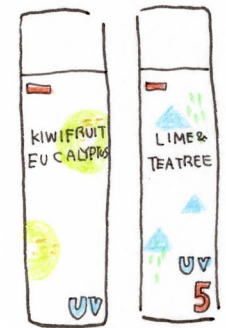 KIWIFRUIT
EUCALYPTUS
UV
LIME &
TEATREE
UV
5